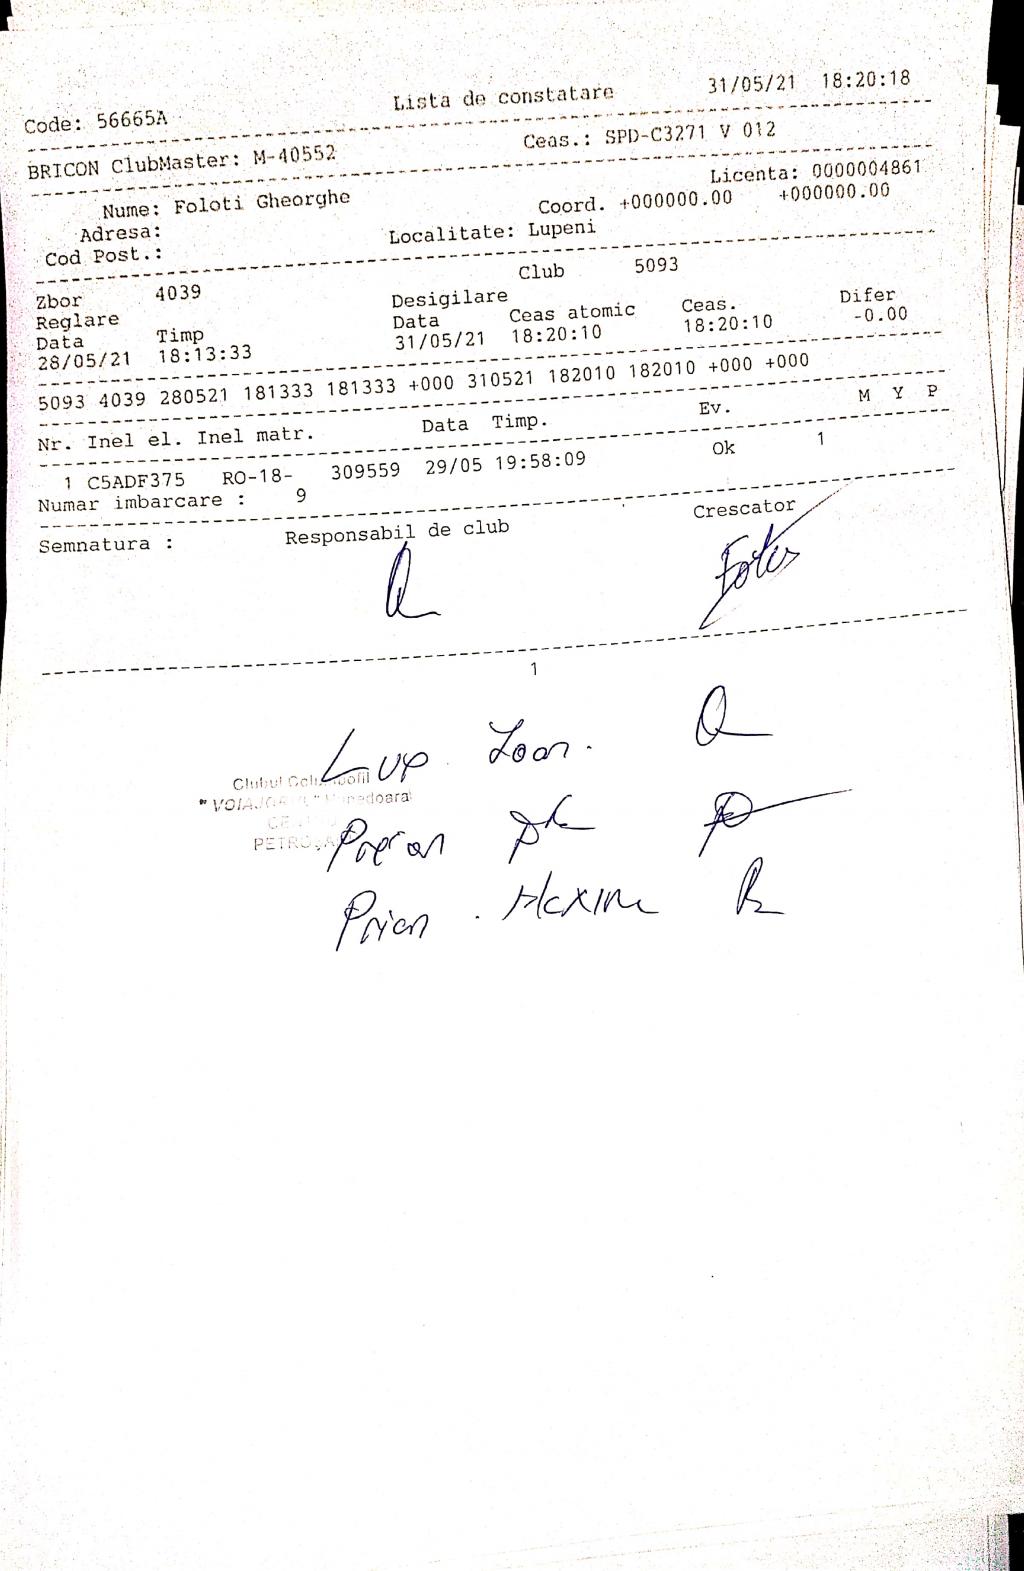 Code: 56665A Lista de constatare 31/05/21 18:20:18
BRICON ClubMaster: M-40552 Ceas.: SPD-C3271 V 012
Nume: Foloti Gheorghe Licenta: 0000004861
Adresa: Coord. +000000.00 +000000.00
Cod Post.: Localitate: Lupeni
Zbor 4039 Club 5093
Reglare Desigilare
Data Timp Data Ceas atomic Ceas. Difer
28/05/21 18:13:33 31/05/21 18:20:10 18:20:10 -0.00
5093 4039 280521 181333 181333 +000 310521 182010 182010 +000 +000
Nr. Inel el. Inel matr. Data Timp. Ev. M Y P
1 C5ADF375 RO-18- 309559 29/05 19:58:09 Ok 1
Numar imbarcare : 9
Semnatura : Responsabil de club Crescator
1
Lup Ioan.
Clubul